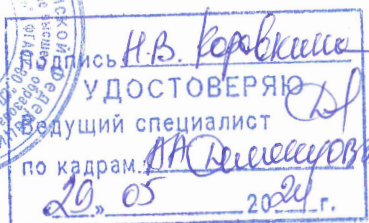 Подпись Н.В. Коровкина
УДОСТОВЕРЯЮ
Ведущий специалист
по кадрам
"29" 05 2024 г.